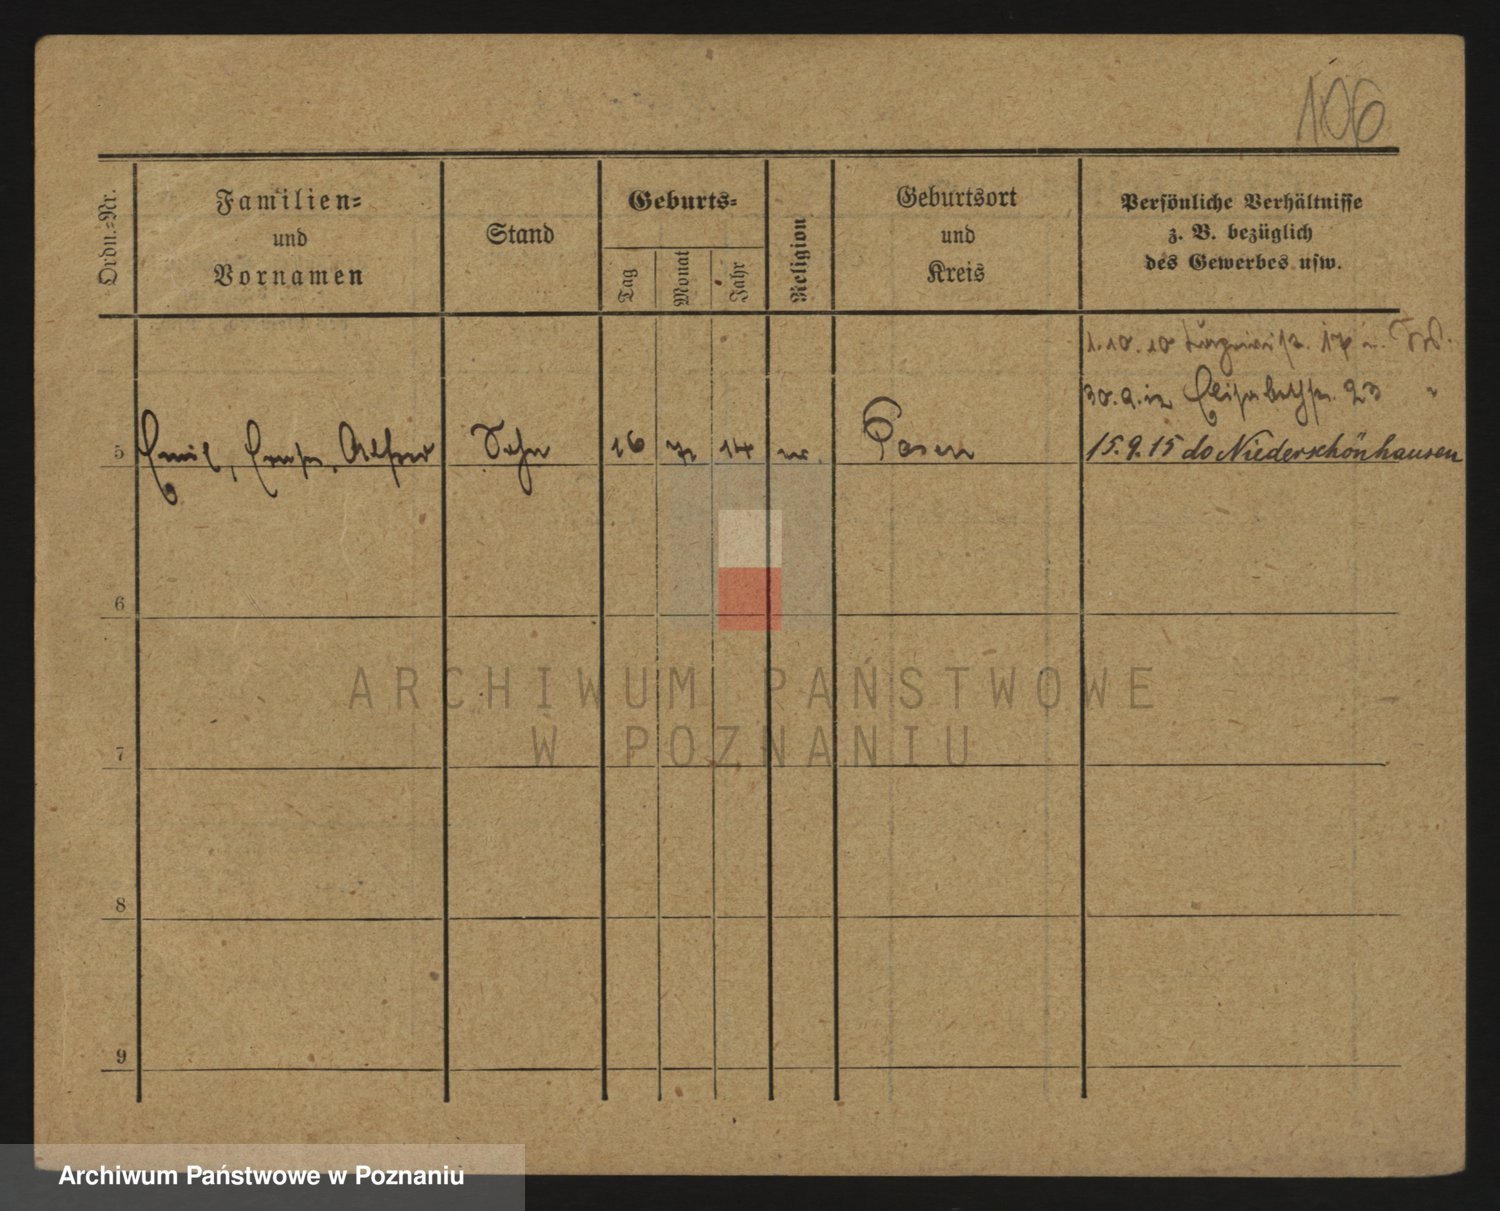 106
Ordn.-Nr.
Familien-
und
Vornamen
Stand
Geburts-
Tag
Monat
Jahr
Religion
Geburtsort
und
Kreis
Persönliche Verhältnisse
z. B. bezüglich
des Gewerbes usw.
1.10.10 17
30.9.12 Elisabethstr. 23 "
5 Emil, Ernst, Alfred Sohn 16 14 Posen 15.9.15 do Niederschönhausen
6
7
8
9
ARCHIWUM PAŃSTWOWE
W POZNANIU
Archiwum Państwowe w Poznaniu